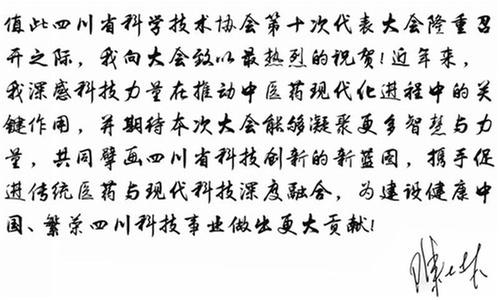 值此四川省科学技术协会第十次代表大会隆重召
开之际，我向大会致以最热烈的祝贺！近年来，
我深感科技力量在推动中医药现代化进程中的关
键作用，并期待本次大会能够凝聚更多智慧与力
量，共同擘画四川省科技创新的新蓝图，携手促
进传统医药与现代科技深度融合，为建设健康中
国、繁荣四川科技事业做出更大贡献！